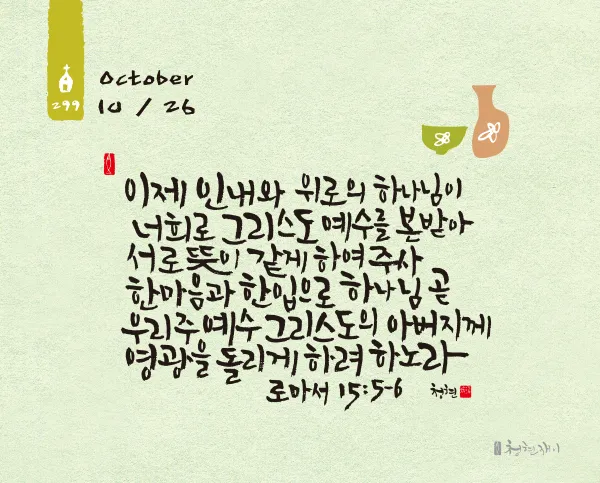 299
October
10 / 26
이제 인내와 위로의 하나님이
너희로 그리스도 예수를 본받아
서로 뜻이 같게 하여 주사
한마음과 한입으로 하나님 곧
우리주 예수 그리스도의 아버지께
영광을 돌리게 하려 하노라
로마서 15:5-6 청현
청현재이